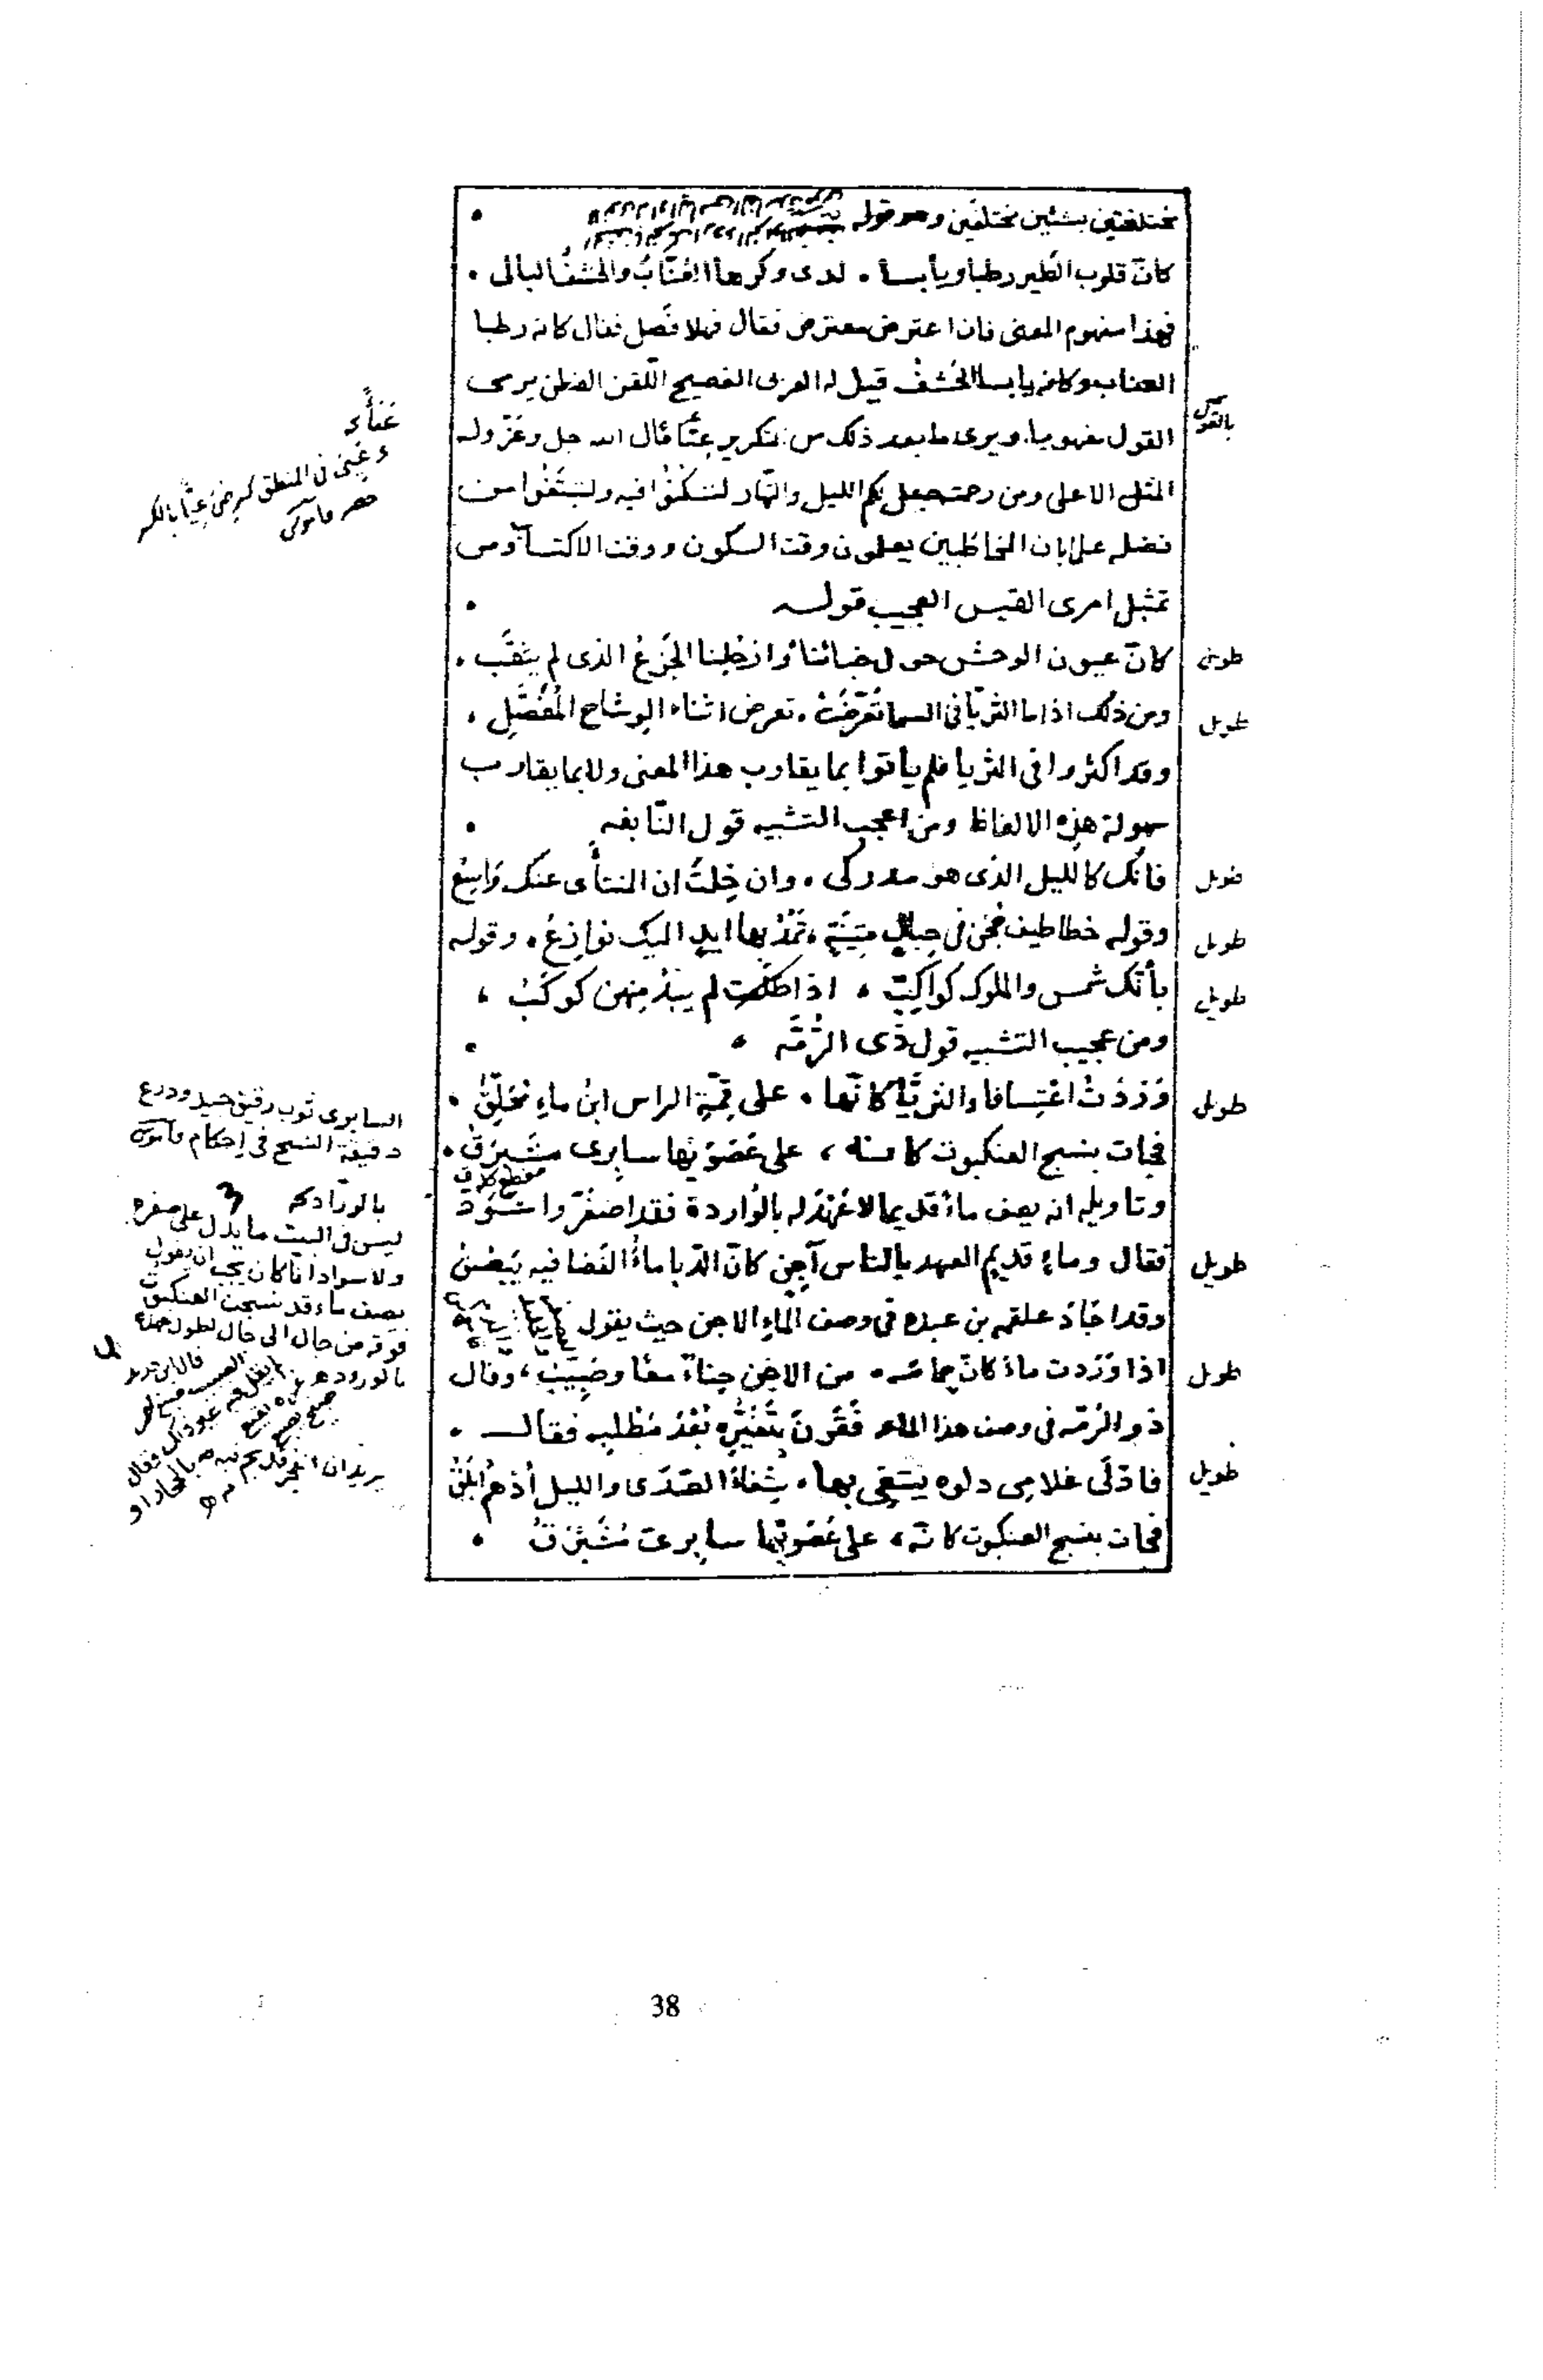 مختلفتين بشئين مختلفين وهو قوله
كانّ قلوب الطير رطبا ويابسا . لدى وكرها العُنّابُ والحشفُ البالى .
فهذا مفهوم المعنى فان اعترض معترض فقال فهلا فصل فقال كانه رطبا
العناب وكانه يابسا الحَشفُ قيل له العربى الفصيح اللّقن الفطن يرمى
بالقول
القول مفهوما ويرى ما بعد ذلك من التكرير عيّا قال الله جل وعزّ وله
المثل الاعلى ومن رحمته جعل لكم الليل والنّهار لتسكنُوا فيه ولتبتَغُوا من
فضله علما بان المخاطبين يعلمون وقت السكون ووقت الاكتساب ومن
تمثيل امرى القيس العجيب قوله
طويل كانّ عيون الوحش حول خبائنا وارحُلِنا الجَزعُ الذى لم يثقَّب .
طويل ومن ذلك اذا ما الثريّا فى السما تعَرّضتْ . تعرض اثناء الوشاح المُفَصَّلِ .
وقد اكثروا فى الثريا فلم يأتوا بما يقارب هذا المعنى ولا بما يقارب
سهولة هذه الالفاظ ومن اعجب التشبيه قول النّابغه
طويل فانّك كالليل الذى هو مدركى . وان خِلتُ ان المنتأى عنك وَاسِعُ
طويل وقوله خطاطيف حُجن فى حِبالٍ متينَةٍ . تَمُدّ بها ايدٍ اليك نوازِعُ . وقوله
طويل بأنّك شمس والملوك كواكِبٌ . اذا طلَعت لم يَبْدُ مِنهن كوكَبُ .
ومن عجيب التشبيه قول ذى الرُّمّه
طويل وَرَدْتُ اعْتِسافا والثريّا كانّها . على قِمّةِ الراس ابنُ ماءٍ مُحَلِّقُ .
فجات بنسج العنكبوت كانه ، على عَصَوَيْها سابِرى مشَبرَقُ .
وتاويله انه يصف ماءً قديما لا عَهْدَ له بالوَاردة فقد اصفرّ واسْوَدّ
طويل فقال وماءٍ قديم العهد بالناس آجِنٍ كانّ الدّبا ماءُ الغَضا فيه يَبْصُقُ
وقد اجَادَ علقمه بن عبده فى وصف الماءِ الاجن حيث يقول
طويل اذا وَرَدت ماءً كانّ جِمامَه . من الاجْنِ حِنّاءٌ معًا وصَبِيبُ ، وقال
ذو الرُمّه فى وصف هذا الماء فَقَرن بتَغَيُّرِه بُعْدَ مَطْلبِه فقال .
طويل فادْلَى غلامى دلوه يبتغى بها . شِفَاءَ الصَّدَى والليل أدْهَمُ ابْلَقُ
فجات بنسج العنكبوت كانه ، على عَصَوَيْها سابرى مُشَبْرَقُ .
وعَيِىَ فى المنطق كرضى عِيّا بالكسر
حصر قاموس
السابرى ثوب رقيق جيد ودرع
دقيقة النسج فى إحكام قاموس
ليس فى البيت ما يدل على صفره
ولا سواد انما كان يجب ان يقول
يصف ماء قد نسجت العنكبوت
فوقه من حال الى حال لطول عهده
بالورود
38